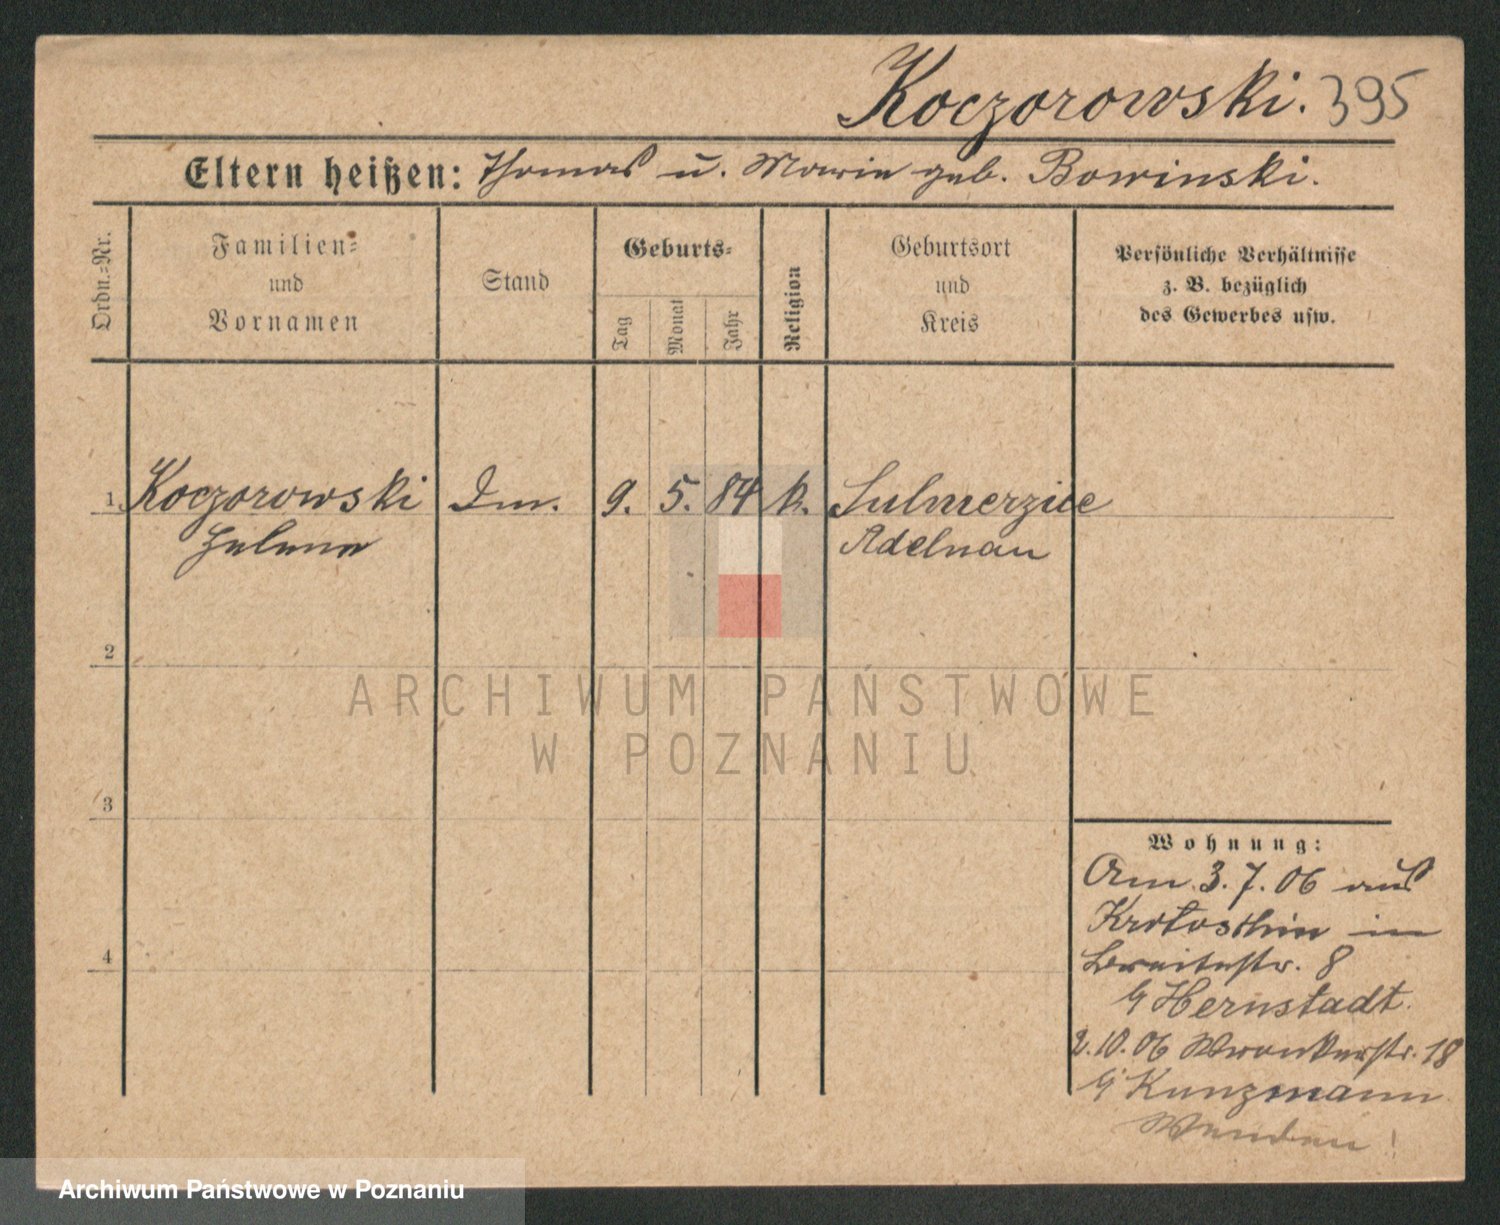 Koczorowski. 395
Eltern heißen: Thomas u. Marie geb. Bowinski.
Ordn.-Nr.
Familien-
und
Vornamen
Stand
Geburts-
Tag
Monat
Jahr
Religion
Geburtsort
und
Kreis
Persönliche Verhältnisse
z. B. bezüglich
des Gewerbes usw.
1 Koczorowski 9. 5. 84 k. Sulmerzice
Helene Adelnau
2
ARCHIWUM PAŃSTWOWE
W POZNANIU
3
Wohnung:
Am 3.7.06 aus
Krotoschin in
Breitestr. 8
4
b/ Hernstadt.
2.10.06 Wronkerstr. 18
b/ Kunzmann
Wenden!
Archiwum Państwowe w Poznaniu